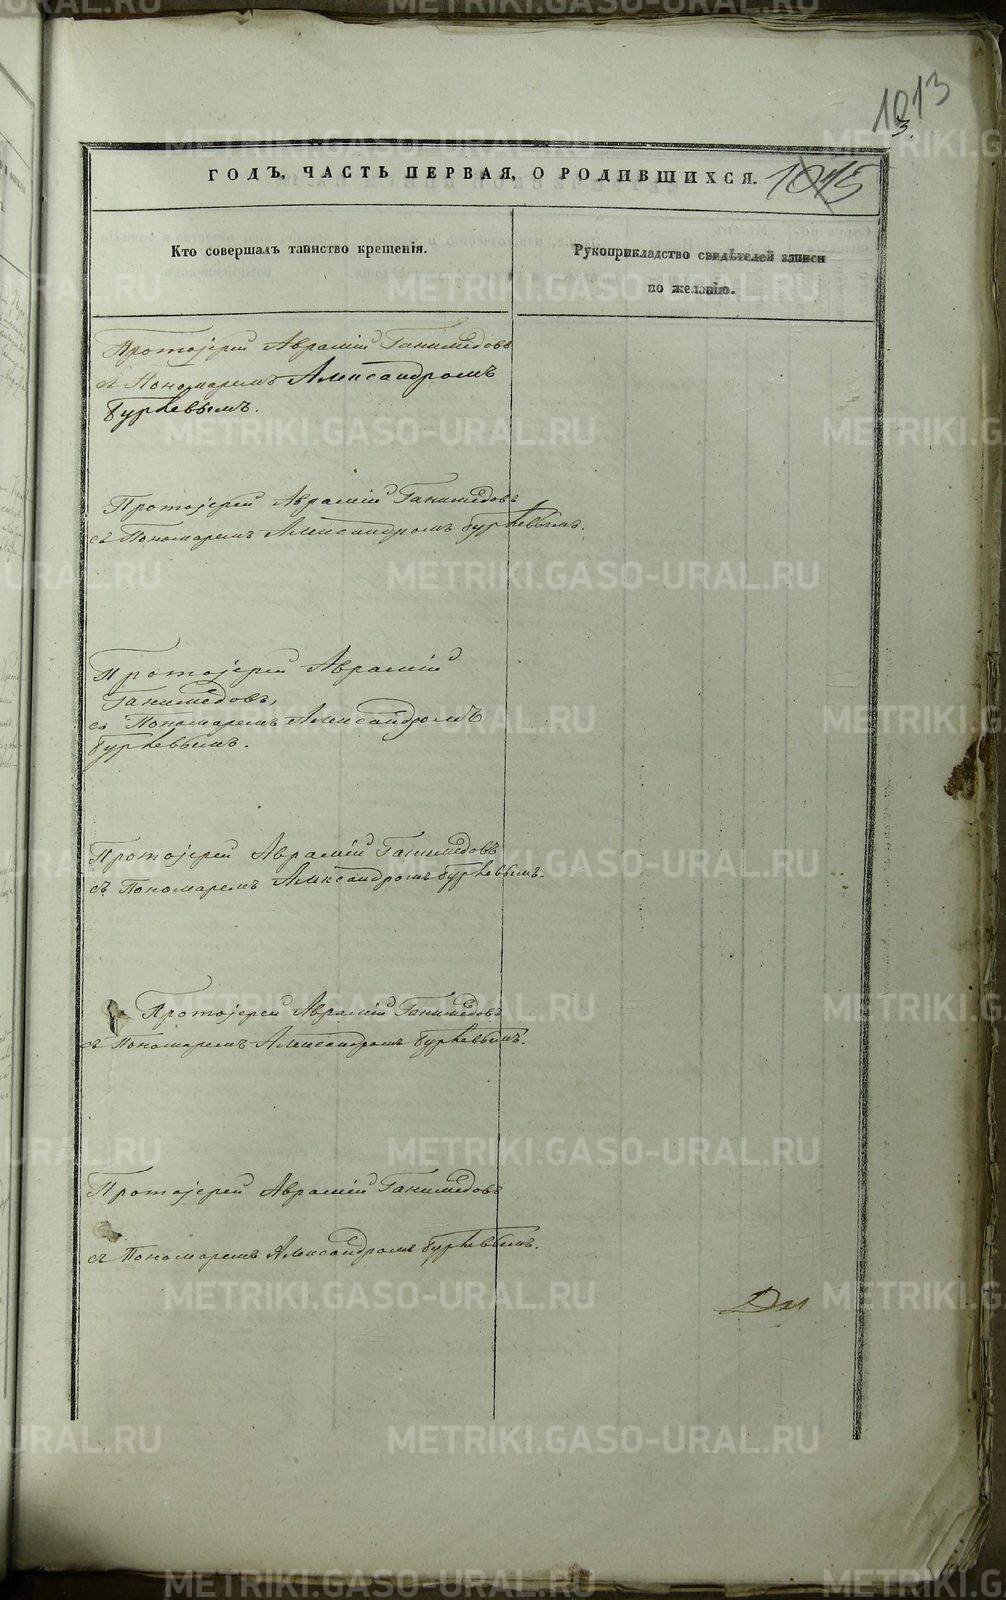 1013
3.
ГОДЪ, ЧАСТЬ ПЕРВАЯ, О РОДИВШИХСЯ.
1015
Кто совершалъ таинство крещенія.
Рукоприкладство свидѣтелей записи
по желанію.
Протоіерей Аврамій Ганимедовъ
съ Пономаремъ Александромъ
Гурьевымъ.
Протоіерей Аврамій Ганимедовъ
съ Пономаремъ Александромъ Гурьевымъ.
Протоіерей Аврамій
Ганимедовъ,
съ Пономаремъ Александромъ
Гурьевымъ.
Протоіерей Аврамій Ганимедовъ
съ Пономаремъ Александромъ Гурьевымъ.
Протоіерей Аврамій Ганимедовъ
съ Пономаремъ Александромъ Гурьевымъ.
Протоіерей Аврамій Ганимедовъ
съ Пономаремъ Александромъ Гурьевымъ.
METRIKI.GASO-URAL.RU